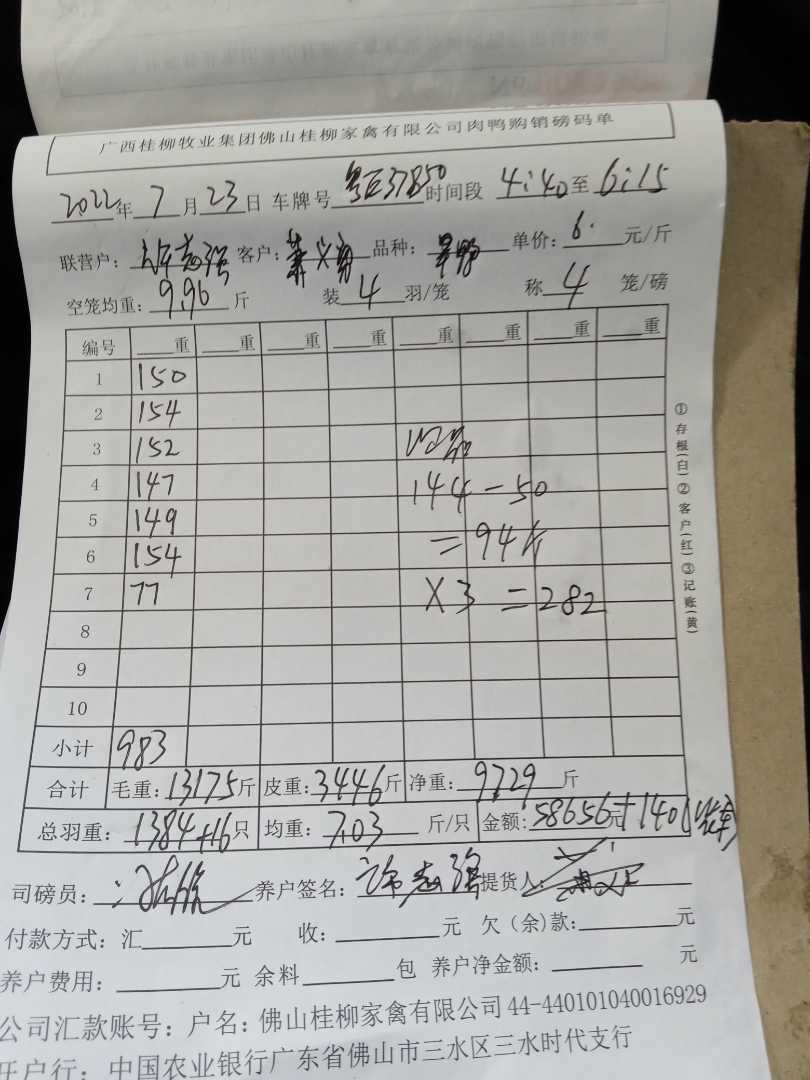 广西桂柳牧业集团佛山桂柳家禽有限公司肉鸭购销磅码单
2022年7月23日 车牌号 粤E37850 时间段 4:40至6:15
联营户: 许志强 客户: 品种: 单价: 6. 元/斤
空笼均重: 9.96 斤 装4羽/笼 称4笼/磅
编号 重 重 重 重 重 重 重 重
1 150
2 154
3 152
4 147 144-50
5 149 =94斤
6 154 ×3=282
7 77
8
9
10
小计 983
合计 毛重: 13175斤 皮重: 3446斤 净重: 9729斤
总羽重: 1384+16只 均重: 7.03 斤/只 金额: 58656元+140
司磅员: 养户签名: 许志强 提货人:
付款方式: 汇 元 收: 元 欠(余)款: 元
养户费用: 元 余料 包 养户净金额: 元
公司汇款账号: 户名: 佛山桂柳家禽有限公司 44-440101040016929
开户行: 中国农业银行广东省佛山市三水区三水时代支行
①存根(白)②客户(红)③记账(黄)